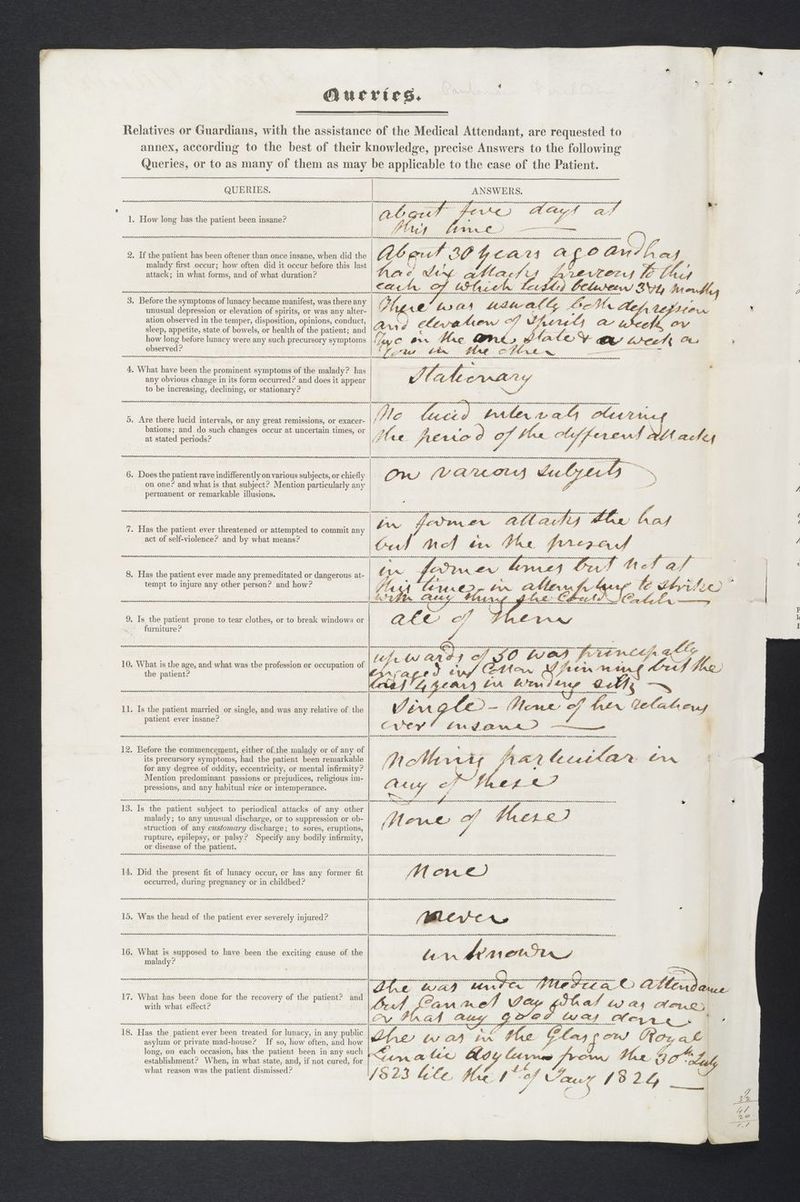 Queries.
Relatives or Guardians, with the assistance of the Medical Attendant, are requested to
annex, according to the best of their knowledge, precise Answers to the following
Queries, or to as many of them as may be applicable to the case of the Patient.
QUERIES.
ANSWERS.
1. How long has the patient been insane?
about five days at
this time
2. If the patient has been oftener than once insane, when did the
malady first occur; how often did it occur before this last
attack; in what forms, and of what duration?
About 30 years ago and has
had six attacks previous to this
each of which lasted between 3 & 4 Months
3. Before the symptoms of lunacy became manifest, was there any
unusual depression or elevation of spirits, or was any alter-
ation observed in the temper, disposition, opinions, conduct,
sleep, appetite, state of bowels, or health of the patient; and
how long before lunacy were any such precursory symptoms
observed?
There was usually both depression
and elevation of Spirits a week or
Two in the one State & a week or
Two in the other
4. What have been the prominent symptoms of the malady? has
any obvious change in its form occurred? and does it appear
to be increasing, declining, or stationary?
Stationary
5. Are there lucid intervals, or any great remissions, or exacer-
bations; and do such changes occur at uncertain times, or
at stated periods?
No lucid intervals during
the period of the different attacks
6. Does the patient rave indifferently on various subjects, or chiefly
on one? and what is that subject? Mention particularly any
permanent or remarkable illusions.
on various subjects
7. Has the patient ever threatened or attempted to commit any
act of self-violence? and by what means?
in former attacks She has
but not in the present
8. Has the patient ever made any premeditated or dangerous at-
tempt to injure any other person? and how?
in former times but not at
this time, in attempting to Strike
with any thing She Could Catch
9. Is the patient prone to tear clothes, or to break windows or
furniture?
all of them
10. What is the age, and what was the profession or occupation of
the patient?
upwards of 50 was principally
engaged in Cotton Spinning but the
last 4 years in winding silk
11. Is the patient married or single, and was any relative of the
patient ever insane?
Single - None of her relations
ever insane
12. Before the commencement, either of the malady or of any of
its precursory symptoms, had the patient been remarkable
for any degree of oddity, eccentricity, or mental infirmity?
Mention predominant passions or prejudices, religious im-
pressions, and any habitual vice or intemperance.
Nothing particular in
any of these
13. Is the patient subject to periodical attacks of any other
malady; to any unusual discharge, or to suppression or ob-
struction of any customary discharge; to sores, eruptions,
rupture, epilepsy, or palsy? Specify any bodily infirmity,
or disease of the patient.
None of these
14. Did the present fit of lunacy occur, or has any former fit
occurred, during pregnancy or in childbed?
None
15. Was the head of the patient ever severely injured?
never
16. What is supposed to have been the exciting cause of the
malady?
unknown
17. What has been done for the recovery of the patient? and
with what effect?
She was under Medical Attendance
but Cannot Say what was done
or that any good was done
18. Has the patient ever been treated for lunacy, in any public
asylum or private mad-house? If so, how often, and how
long, on each occasion, has the patient been in any such
establishment? When, in what state, and, if not cured, for
what reason was the patient dismissed?
She was in the Glasgow Royal
Lunatic Asylum from the 30th July
1823 till the 1st of Jany 1824